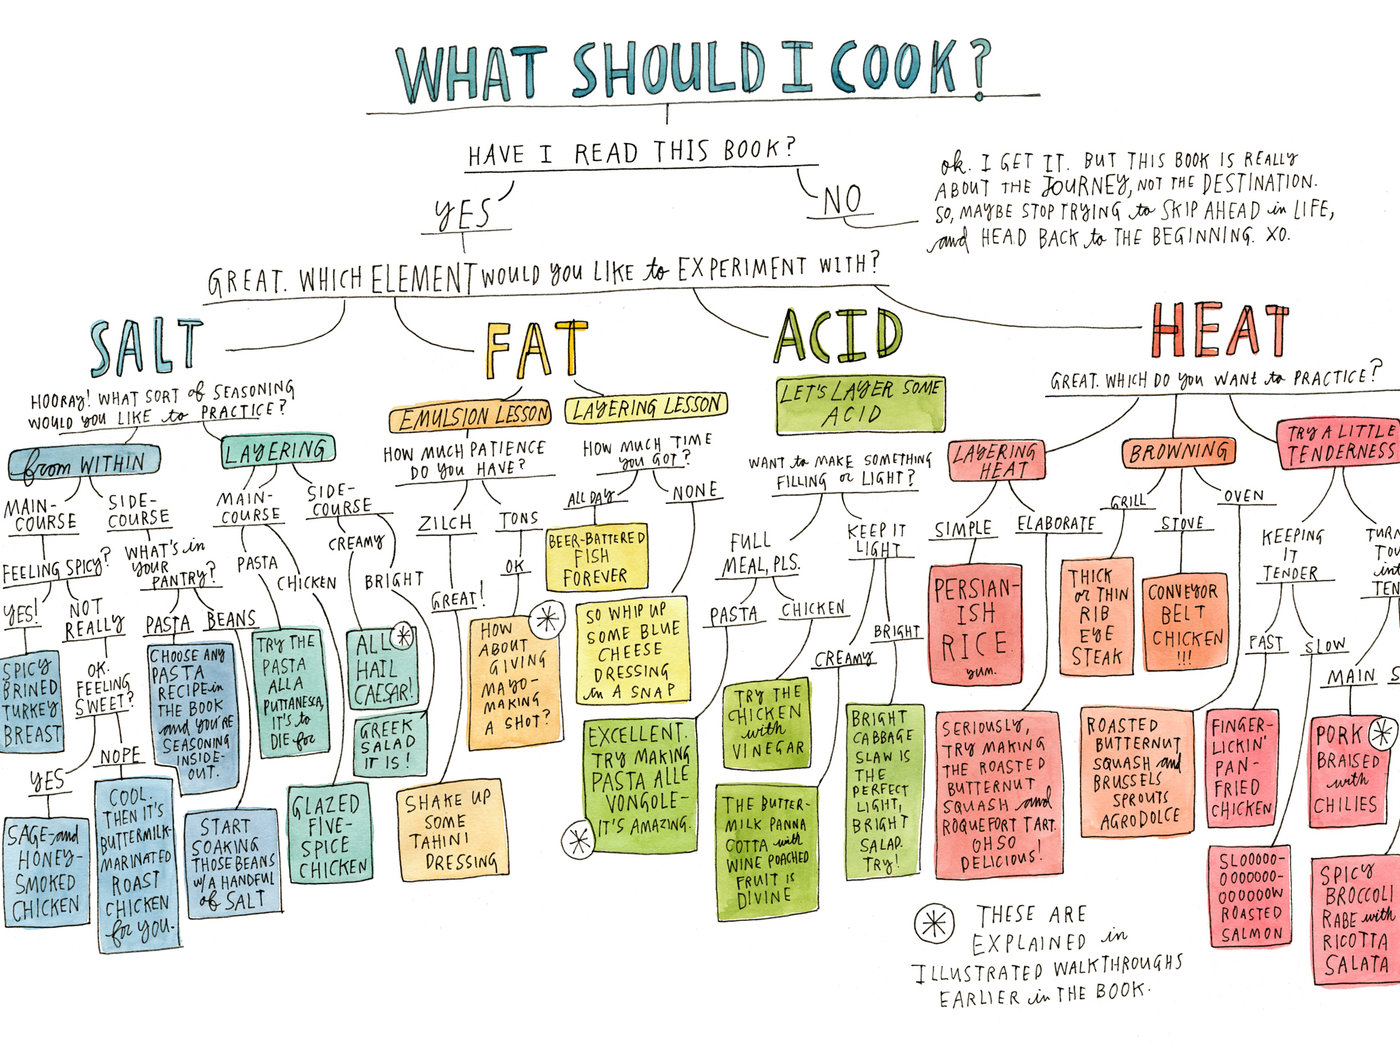 WHAT SHOULD I COOK?
HAVE I READ THIS BOOK?
YES
NO
ok. I GET IT. BUT THIS BOOK IS REALLY
ABOUT THE JOURNEY, NOT THE DESTINATION.
SO, MAYBE STOP TRYING to SKIP AHEAD in LIFE,
and HEAD BACK to THE BEGINNING. XO.
GREAT. WHICH ELEMENT WOULD YOU LIKE to EXPERIMENT WITH?
SALT
HOORAY! WHAT SORT of SEASONING
WOULD YOU LIKE to PRACTICE?
from WITHIN
MAIN-
COURSE
FEELING SPICY?
YES!
SPICY
BRINED
TURKEY
BREAST
NOT
REALLY
OK.
FEELING
SWEET?
YES
SAGE-and
HONEY-
SMOKED
CHICKEN
NOPE
COOL.
THEN IT'S
BUTTERMILK-
MARINATED
ROAST
CHICKEN
for YOU.
SIDE-
COURSE
WHAT'S in
YOUR
PANTRY?
PASTA
CHOOSE ANY
PASTA
RECIPE in
THE BOOK
and YOU'RE
SEASONING
INSIDE-
OUT.
BEANS
START
SOAKING
THOSE BEANS
W/A HANDFUL
of SALT
LAYERING
MAIN-
COURSE
PASTA
TRY THE
PASTA
ALLA
PUTTANESCA,
IT'S to
DIE for
CHICKEN
GLAZED
FIVE-
SPICE
CHICKEN
SIDE-
COURSE
CREAMY
ALL
HAIL
CAESAR!
BRIGHT
GREEK
SALAD
IT IS!
FAT
EMULSION LESSON
HOW MUCH PATIENCE
DO YOU HAVE?
ZILCH
GREAT!
SHAKE UP
SOME
TAHINI
DRESSING
TONS
OK
HOW
ABOUT
GIVING
MAYO-
MAKING
A SHOT?
LAYERING LESSON
HOW MUCH TIME
YOU GOT?
ALL DAY
BEER-BATTERED
FISH
FOREVER
NONE
SO WHIP UP
SOME BLUE
CHEESE
DRESSING
in A SNAP
ACID
LET'S LAYER SOME
ACID
WANT to MAKE SOMETHING
FILLING or LIGHT?
FULL
MEAL, PLS.
PASTA
EXCELLENT.
TRY MAKING
PASTA ALLE
VONGOLE-
IT'S AMAZING.
CHICKEN
TRY THE
CHICKEN
with
VINEGAR
KEEP IT
LIGHT
CREAMY
THE BUTTER-
MILK PANNA
COTTA with
WINE POACHED
FRUIT IS
DIVINE
BRIGHT
BRIGHT
CABBAGE
SLAW IS
THE
PERFECT
LIGHT,
BRIGHT
SALAD.
TRY!
HEAT
GREAT. WHICH DO YOU WANT to PRACTICE?
LAYERING
HEAT
SIMPLE
PERSIAN-
ISH
RICE
yum.
ELABORATE
SERIOUSLY,
TRY MAKING
THE ROASTED
BUTTERNUT
SQUASH and
ROQUEFORT TART.
OH SO
DELICIOUS!
BROWNING
GRILL
THICK
or THIN
RIB
EYE
STEAK
STOVE
CONVEYOR
BELT
CHICKEN
!!!
OVEN
ROASTED
BUTTERNUT
SQUASH and
BRUSSELS
SPROUTS
AGRODOLCE
TRY A LITTLE
TENDERNESS
KEEPING
IT
TENDER
FAST
FINGER-
LICKIN'
PAN-
FRIED
CHICKEN
SLOW
SLOOOOO-
OOOOOOO-
OOOOOOW
ROASTED
SALMON
TURN
TOU
int
TEN
MAIN
S
PORK
BRAISED
with
CHILIES
SPICY
BROCCOLI
RABE with
RICOTTA
SALATA
THESE ARE
EXPLAINED in
ILLUSTRATED WALKTHROUGHS
EARLIER in THE BOOK.